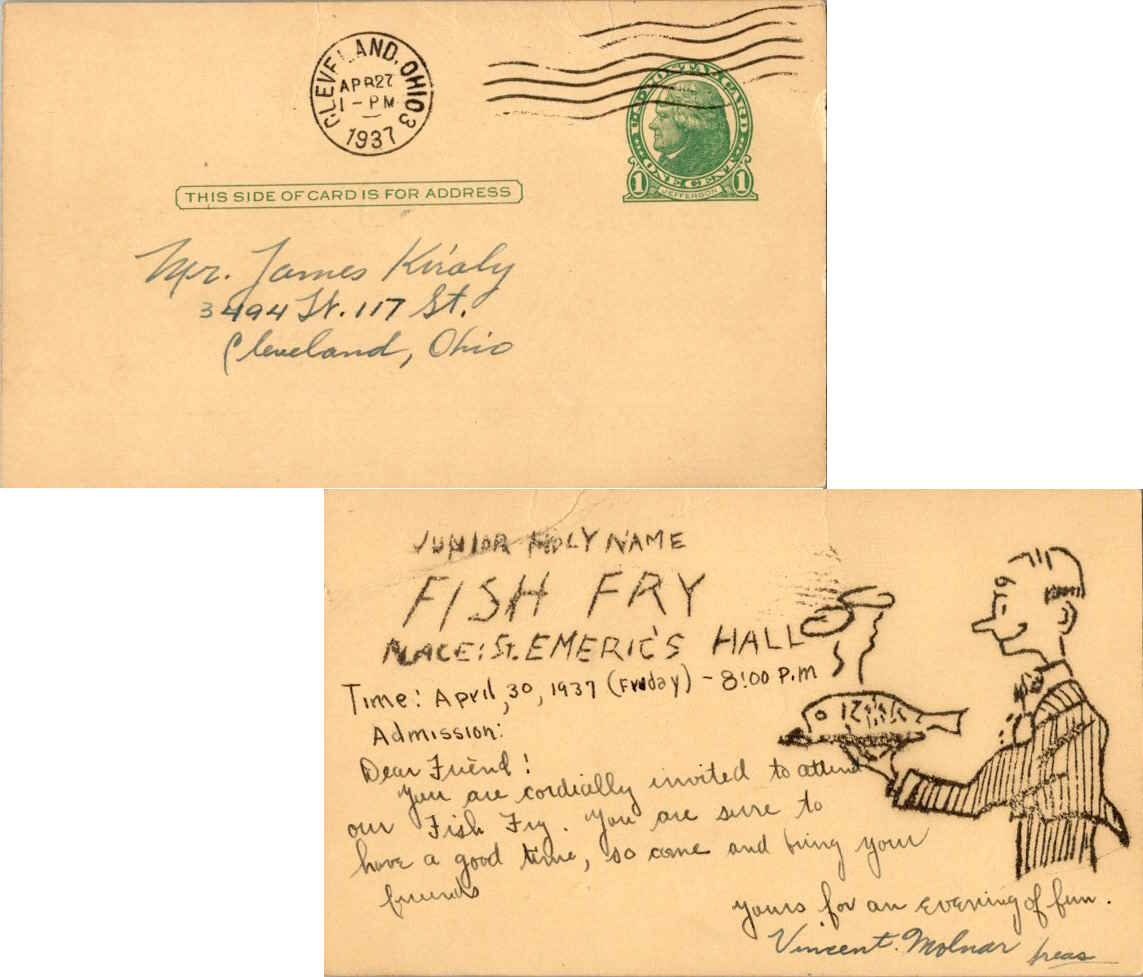 CLEVELAND, OHIO 3
APR 27
1 - PM
1937
UNITED STATES POSTAGE
1 JEFFERSON 1
THIS SIDE OF CARD IS FOR ADDRESS
Mr. James Király
3494 W. 117 St.
Cleveland, Ohio
JUNIOR HOLY NAME
FISH FRY
PLACE: St. EMERIC'S HALL
Time: April, 30, 1937 (Friday) - 8:00 P.M
Admission:
Dear Friend!
You are cordially invited to attend
our Fish Fry. You are sure to
have a good time, so come and bring your
friends
yours for an evening of fun.
Vincent Molnar treas